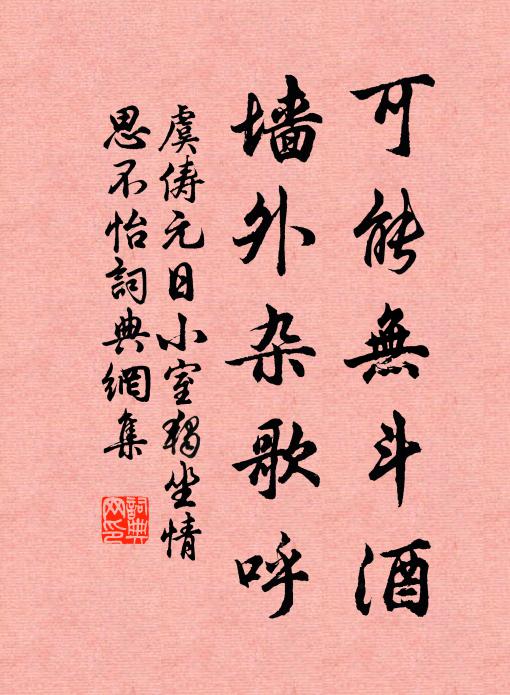 可能無斗酒
墙外杂歌呼
虞俦元日小室獨坐情
思不怡詞典網集
詞典
网印